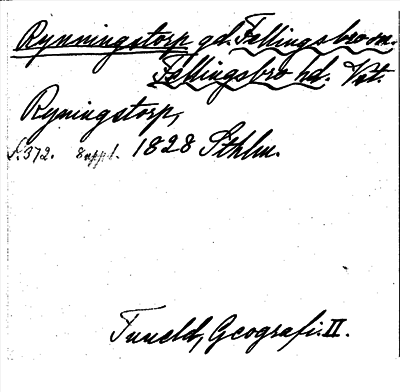 Rynningstorp gd. Fellingsbro sn.
Fellingsbro hd. Vst.
Ryningstorp,
s. 372. 8 uppl. 1828 Sthlm.
Tuneld, Geografi. II.